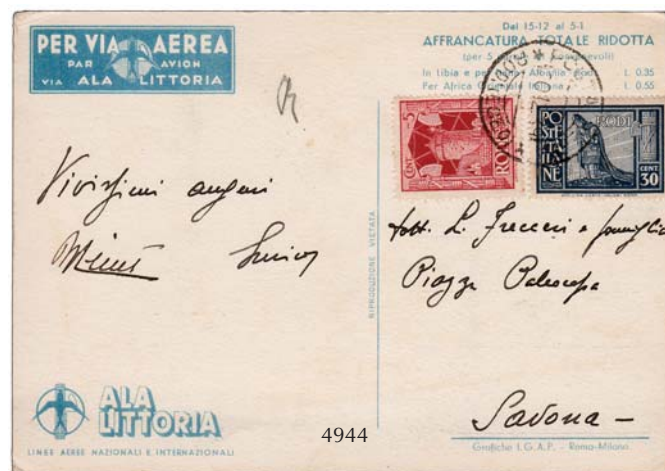 PER VIA AEREA
PAR AVION
VIA ALA LITTORIA
Dal 15-12 al 5-1
AFFRANCATURA TOTALE RIDOTTA
(per 5 parole di convenevoli)
In Libia e per Albania Rodi L. 0.35
Per Africa Orientale Italiana L. 0.55
CENT 5
RODI
POSTE ITALIANE
RODI
CENT 30
Vivissimi auguri
dott. L. Freccero e famiglia
Piazza Paleocapa
Savona -
RIPRODUZIONE VIETATA
ALA
LITTORIA
LINEE AEREE NAZIONALI E INTERNAZIONALI
4944
Grafiche I.G.A.P. - Roma-Milano